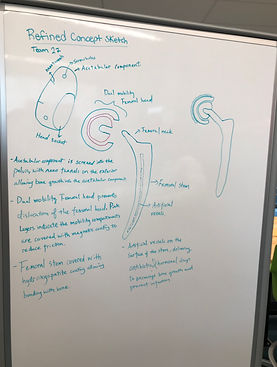 Refined Concept Sketch
Team 22
Screw holes
Acetabular component
Head Socket
Dual mobility
Femoral head
Femoral neck
Femoral stem
Artificial
vessels
- Acetabular component is screwed into the
pelvis, with nano tunnels on the exterior
allowing bone growth into the acetabular component.
- Dual mobility Femoral head prevents
dislocation of the femoral head. Pink
layers indicate the mobility compartments
are covered with magnetic coating to
reduce friction.
- Femoral stem covered with
hydroxyapatite coating allowing
bonding with bone.
- Artificial vessels on the
surface of the stem, delivering
antibiotics/hormonal drugs
to encourage bone growth and
prevent infection.